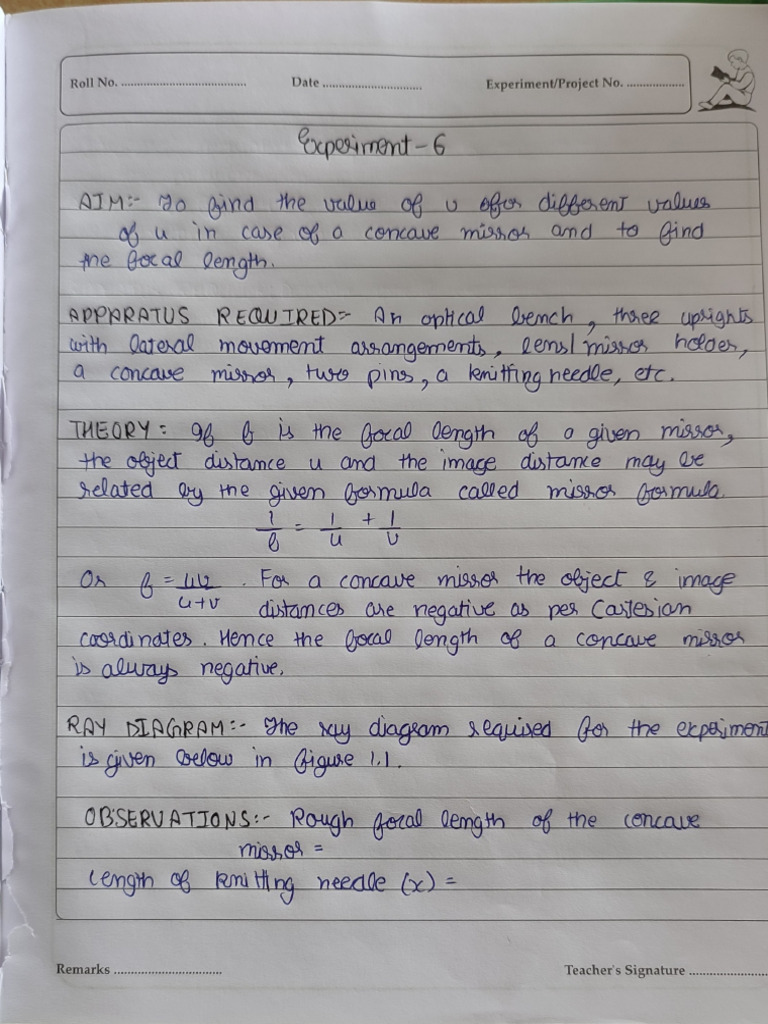 Roll No. ........................................ Date ................................ Experiment/Project No. ..................
Experiment - 6
AIM:- To find the value of v for different values
of u in case of a concave mirror and to find
the focal length.
APPARATUS REQUIRED:- An optical bench, three uprights
with lateral movement arrangements, lens/mirror holder,
a concave mirror, two pins, a knitting needle, etc.
THEORY: If f is the focal length of a given mirror,
the object distance u and the image distance may be
related by the given formula called mirror formula.
1/f = 1/u + 1/v
Or f = uv/u+v . For a concave mirror the object & image
distances are negative as per Cartesian
coordinates. Hence the focal length of a concave mirror
is always negative.
RAY DIAGRAM:- The ray diagram required for the experiment
is given below in figure 1.1.
OBSERVATIONS:- Rough focal length of the concave
mirror =
Length of knitting needle (x) =
Remarks ................................ Teacher's Signature ......................